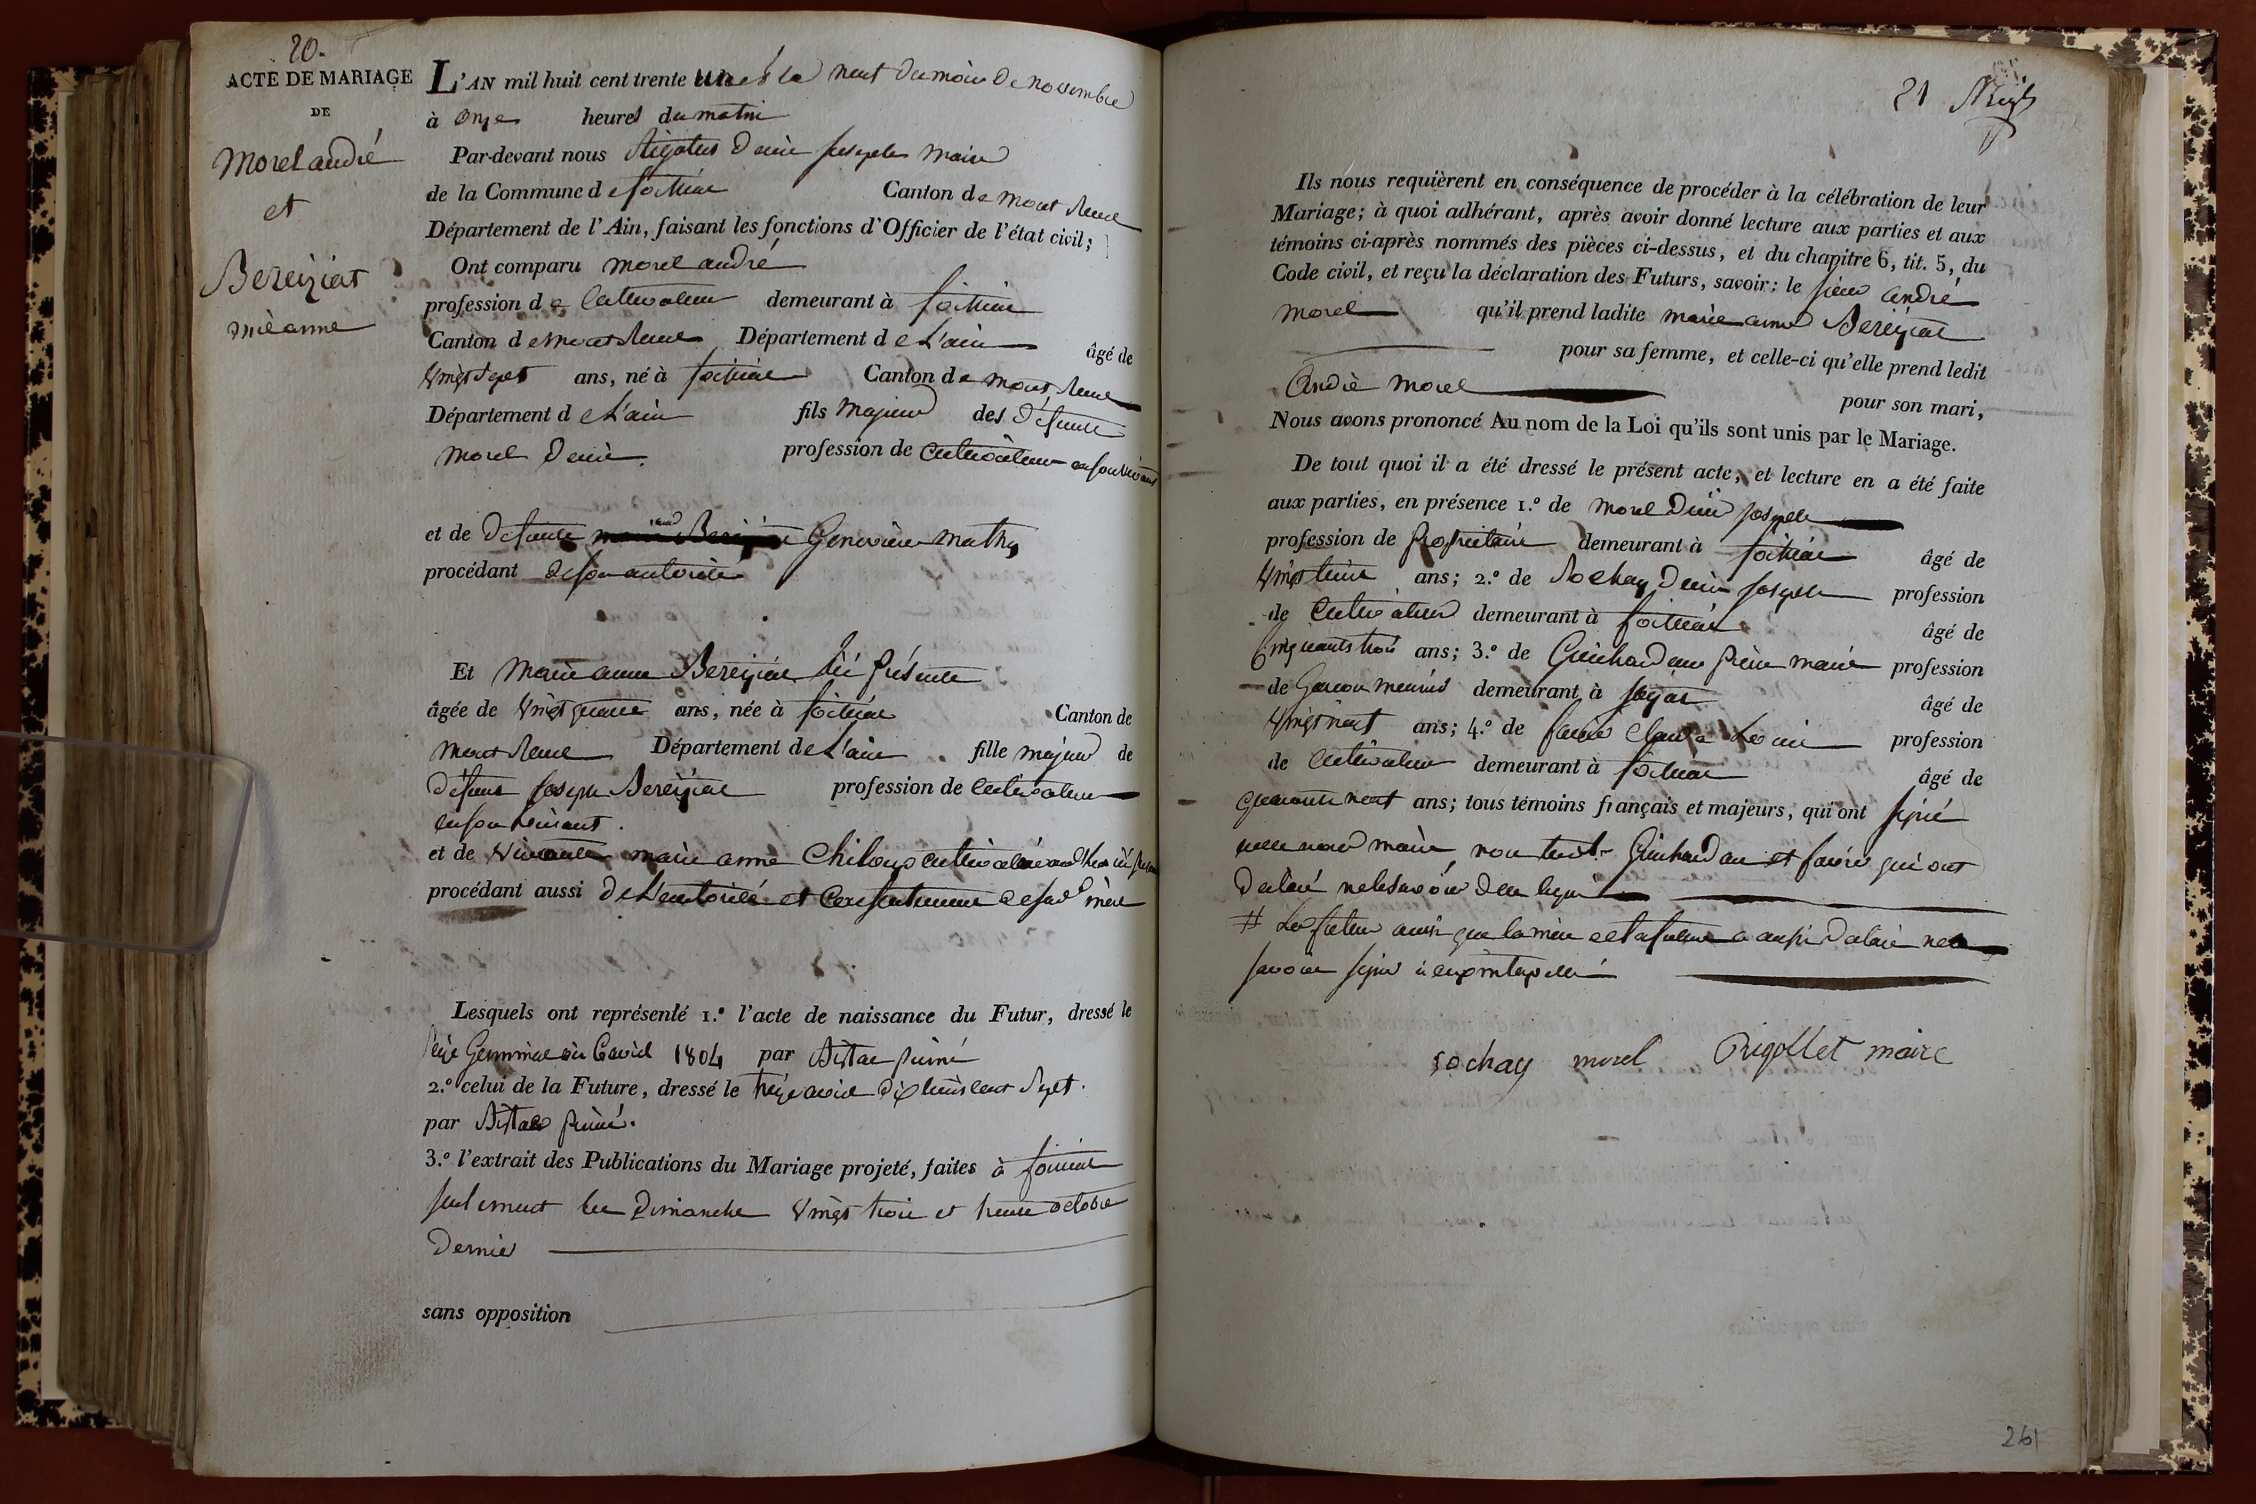 20.
ACTE DE MARIAGE
DE
Morel andré
et
Bereiziat
mie anne
L'AN mil huit cent trente un et le neuf du mois de novembre
à onze heures du matin
Par-devant nous Rigollet denis joseph maire
de la Commune de foissiat Canton de montrevel
Département de l'Ain, faisant les fonctions d'Officier de l'état civil;
Ont comparu morel andré
profession de cultivateur demeurant à foissiat
Canton de montrevel Département de L'ain âgé de
vingt sept ans, né à foissiat Canton de montrevel
Département de L'ain fils majeur des défunts
morel denis profession de cultivateur en son vivant
et de défunte Genevieve mathy
procédant de son autorité
Et marie anne Bereiziat ici présente
âgée de vingt quatre ans, née à foissiat Canton de
montrevel Département de L'ain fille majeur de
défunt joseph Bereiziat profession de cultivateur
en son vivant.
et de vivante marie anne Chiloup cultivatrice
procédant aussi de L'autorité et consentement de sad mère
Lesquels ont représenté 1.º l'acte de naissance du Futur, dressé le
seize Germinal six Cavril 1804 par
2.º celui de la Future, dressé le treize avril dix huit cent sept.
par
3.º l'extrait des Publications du Mariage projeté, faites à foissiat
seulement les Dimanche vingt trois et trente octobre
dernier
sans opposition
21
Ils nous requièrent en conséquence de procéder à la célébration de leur
Mariage; à quoi adhérant, après avoir donné lecture aux parties et aux
témoins ci-après nommés des pièces ci-dessus, et du chapitre 6, tit. 5, du
Code civil, et reçu la déclaration des Futurs, savoir: le sieur andré
morel qu'il prend ladite marie anne Bereiziat
pour sa femme, et celle-ci qu'elle prend ledit
andré morel pour son mari,
Nous avons prononcé Au nom de la Loi qu'ils sont unis par le Mariage.
De tout quoi il a été dressé le présent acte, et lecture en a été faite
aux parties, en présence 1.º de morel denis joseph
profession de propriétaire demeurant à foissiat âgé de
vingt huit ans; 2.º de Sochay denis joseph profession
de cultivateur demeurant à foissiat âgé de
cinquante trois ans; 3.º de Guichardan pierre marie profession
de Garcon meunier demeurant à jayat âgé de
vingt neuf ans; 4.º de favre claude profession
de cultivateur demeurant à foissiat âgé de
quarante neuf ans; tous témoins français et majeurs, qui ont signé
avec nous maire, non Guichardan et favre qui ont
déclaré ne le savoir de ce requis
# Le futur ainsi que la mère de la future a aussi déclaré ne
savoir signer
sochay morel Rigollet maire
261